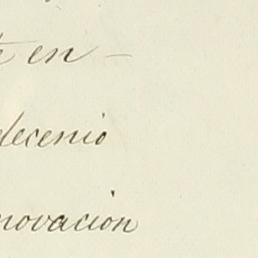 en —
decenio
novacion